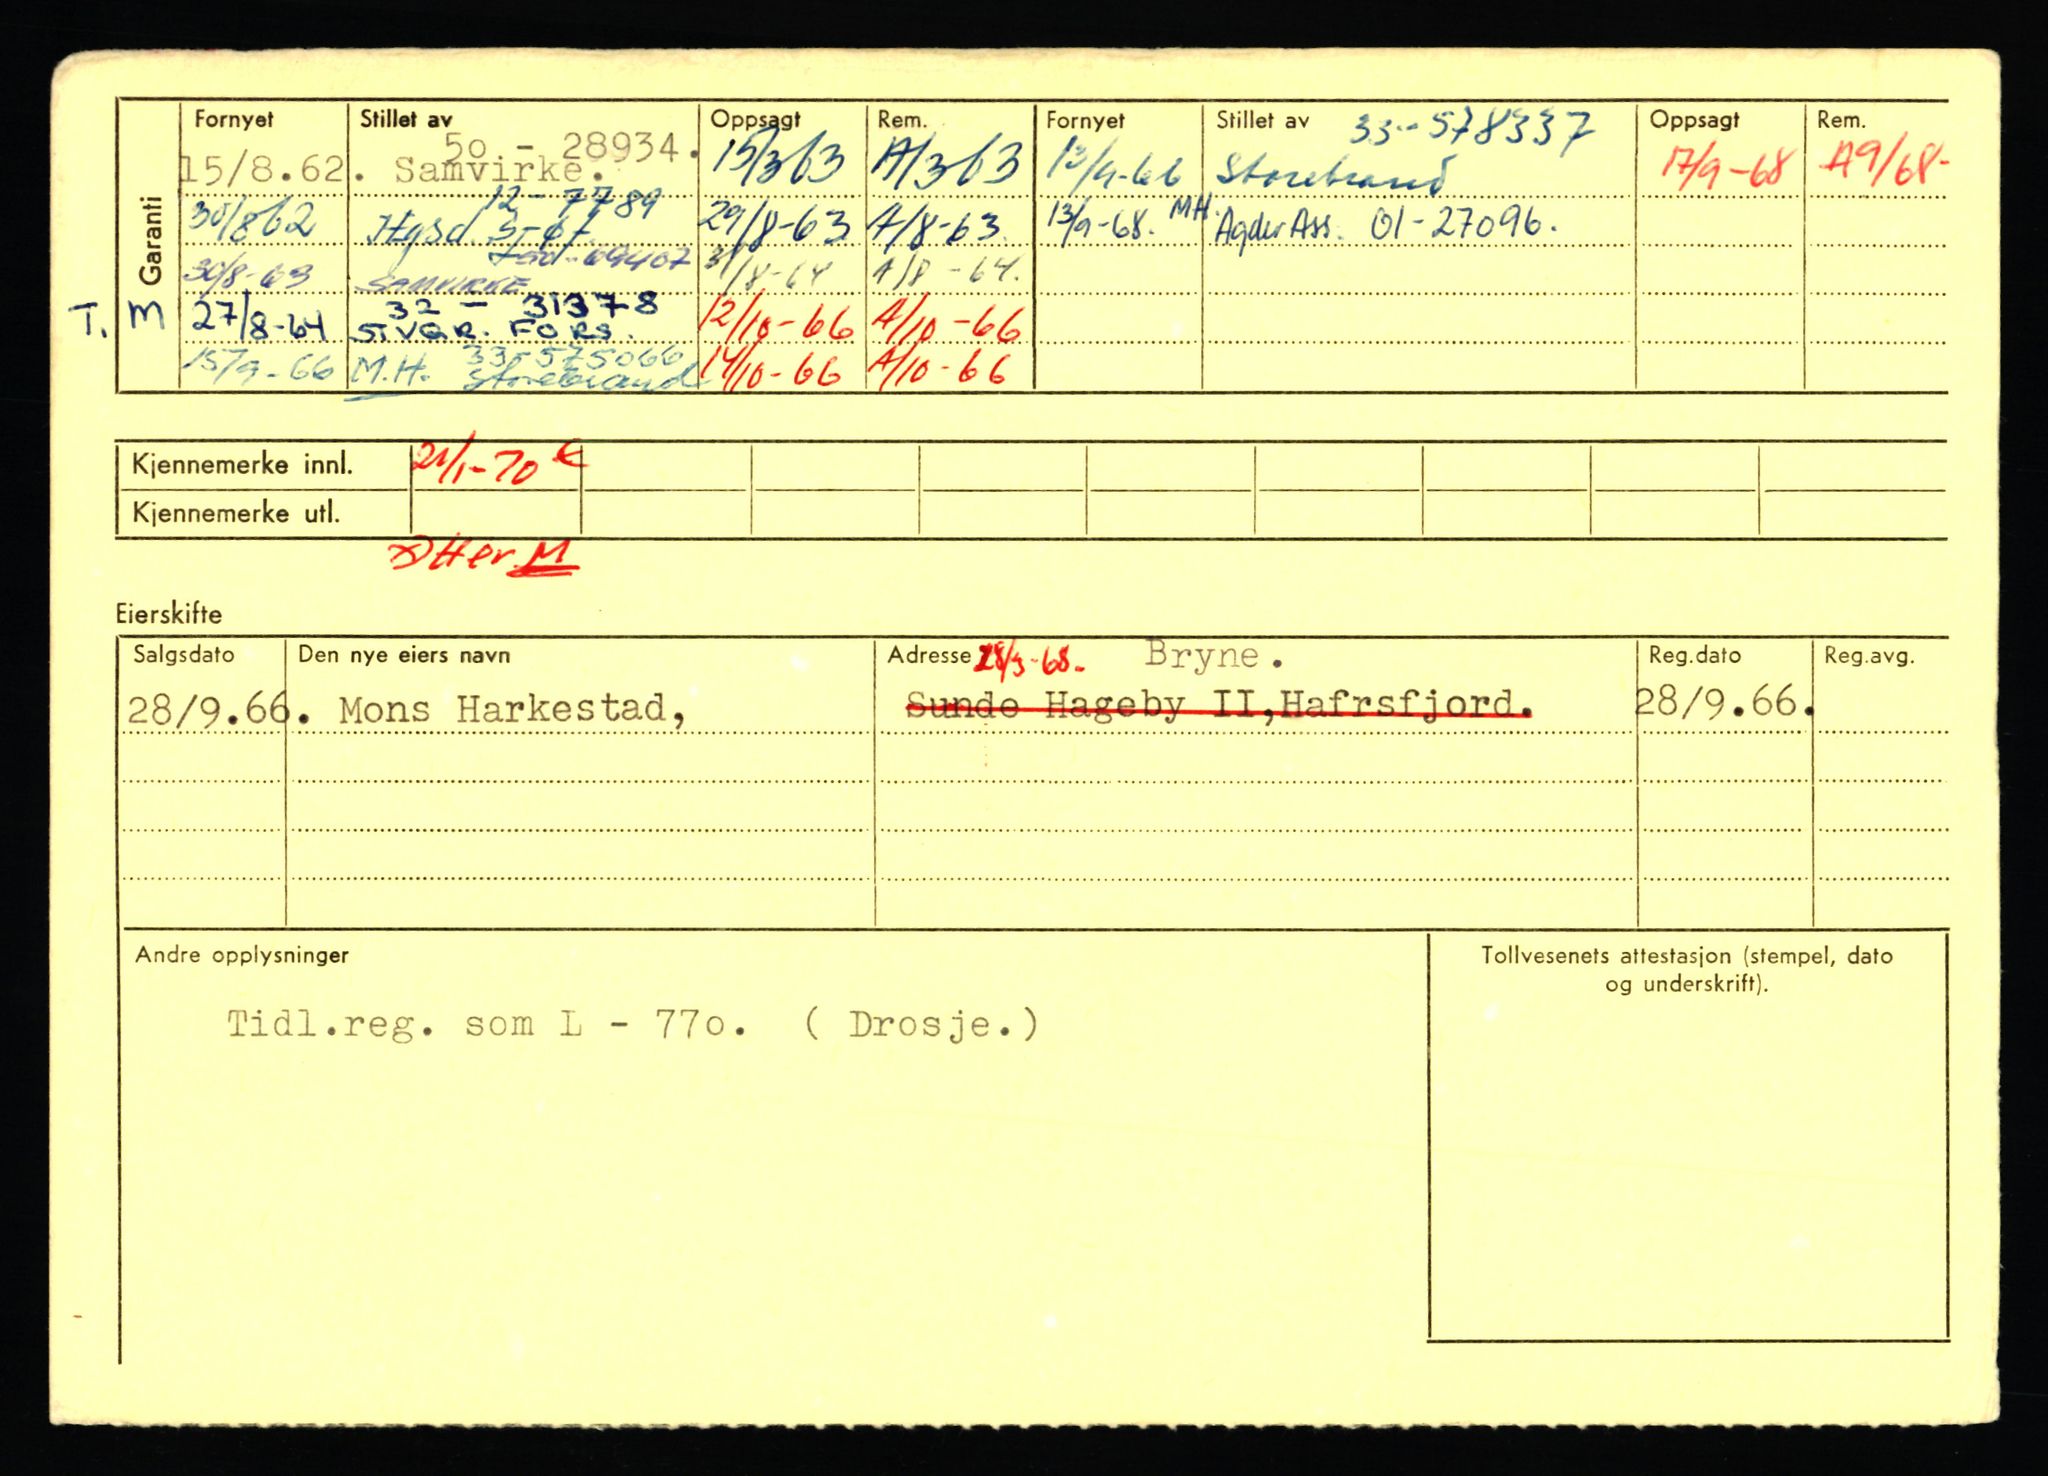 Garanti
Fornyet Stillet av Oppsagt Rem. Fornyet Stillet av 33-578337 Oppsagt Rem.
50 - 28934.
15/8.62. Samvirke. 15/3 63 A/3 63 13/9-66 Storebrand 17/9-68 A9/68-
12-7789
30/8 62 Hgsd. 29/8-63 A/8-63. 13/9-68. MH. Agder Ass. 01-27096.
69407
30/8-63 SAMVIRKE 31/8-64 A/8-64.
32 - 31378
T. M 27/8-64 STVGR. FORS. 12/10-66 A/10-66
33-575066
15/9-66 M.H. Storebrand 14/10-66 A/10-66
Kjennemerke innl. 21/1-70
Kjennemerke utl.
M
Eierskifte
Salgsdato Den nye eiers navn Adresse 28/3-68. Bryne. Reg.dato Reg.avg.
28/9.66. Mons Harkestad, Sunde Hageby II,Hafrsfjord. 28/9.66.
Andre opplysninger
Tollvesenets attestasjon (stempel, dato
og underskrift).
Tidl.reg. som L - 77o. ( Drosje.)